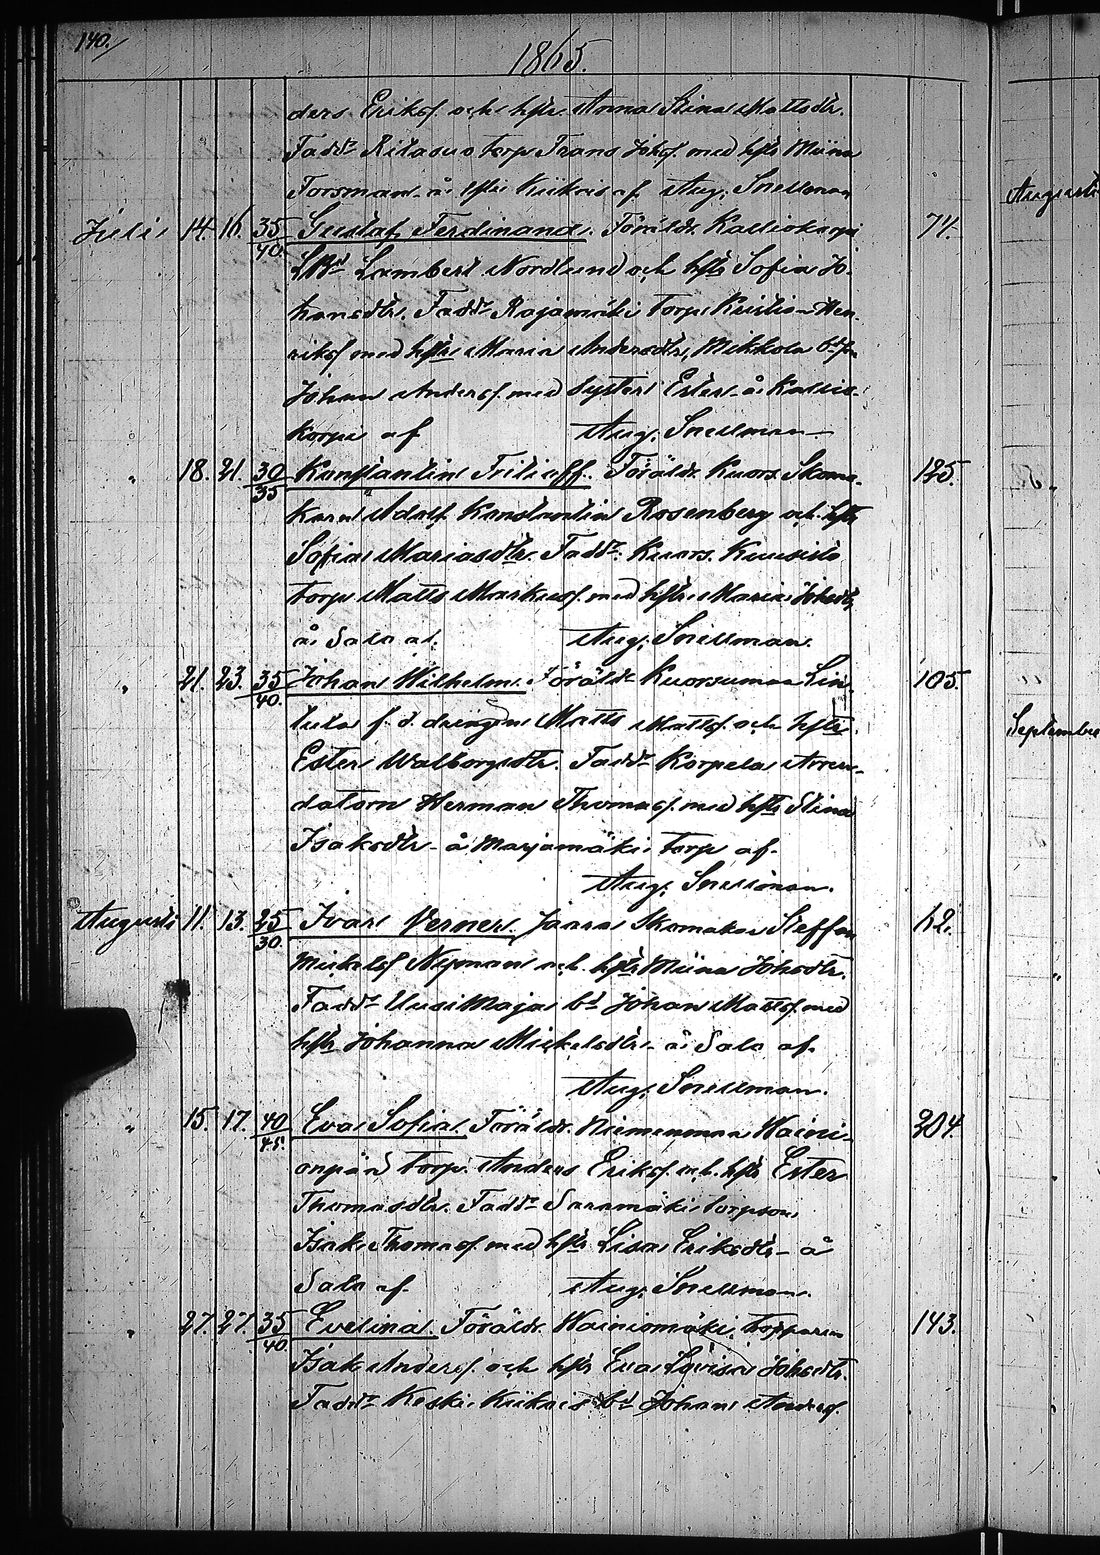 140.
1865.
ders Eriksf. och hstr. Anna Stina Mattsdtr.
Faddr Ritasuo torp. Frans Johsf. med hstr Miina
Forsman å hstr Kiikois af Aug. Snellman
Juli 14. 16. 35/40. Gustaf Ferdinand. Föräldr. Kalliokorpi 74.
Lambert Nordlund och hstr Sofia Jo-
hansdtr. Faddr Rajamäki torp. Hen-
riksf med hstr Maria Andersdtr, Mikkola
Johan Andersf. med Syster Ester å Kallio-
korpi af Aug. Snellman
" 18. 21. 30/35 Konstantin Fritioff. Föräldr. Kuors. Skoma-
karn Adolf Konstantin Rosenberg och hstr 125.
Sofia Mariasdtr. Faddr. Kuors. Kuusisto
torp. Matts Markusf. med hstr Maria Johsdtr
å Salo af. Aug. Snellman.
" 21. 23. 35/40. Johan Wilhelm. Föräldr Kuorsumaa Lin- 105.
tula f. d. drängen Matts Mattsf. och hstr
Ester Walborgsdtr. Faddr Korpela Arren-
datorn Herman Thomasf. med hstr Stina
Isaksdtr å Marjamäki torp af
Aug. Snellman.
Augusti 11. 13. 25/30. Ivar Verner. Jaara Skomakar Steffan 62.
Mickelsf Nyman och hstr Miina Johsdtr.
Faddr Uusi Maja bd Johan Mattsf. med
hstr Johanna Mickelsdtr å Salo af
Aug. Snellman.
" 15. 17. 40/45. Eva Sofia. Föräldr. Niemenmaa Haini- 204.
onpää torp. Anders Eriksf. och hstr Ester
Thomasdtr. Faddr Saramäki torpson
Isak Thomasf. med hstr Lisa Eriksdtr å
Salo af Aug. Snellman.
" 27. 27. 35/40. Evelina. Föräldr. Hainiomäki torparen 143.
Isak Andersf. och hstr Eva Lovisa Johsdtr.
Faddr Keski Kiikois bd Johan Andersf.
Augusti
"
September
"
"
"